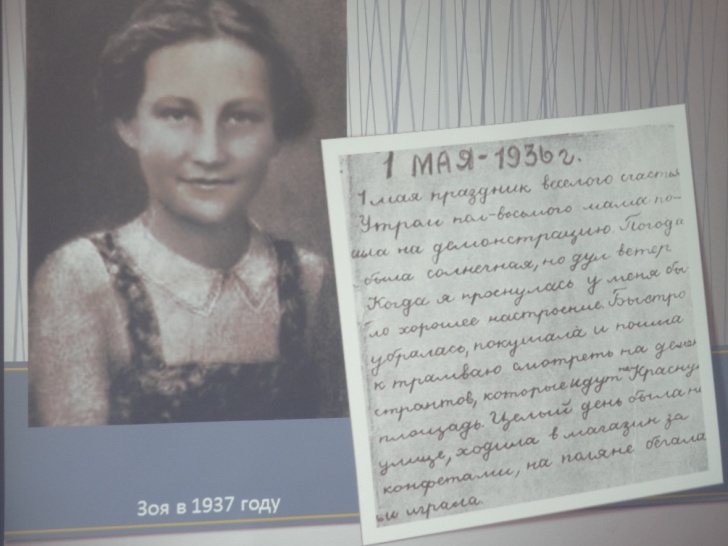 1 МАЯ-1936 г.
1 мая праздник веселого счастья
Утром пол-восьмого мама по-
шла на демонстрацию. Погода
была солнечная, но дул ветер
Когда я проснулась у меня бы
ло хорошее настроение. Быстро
убралась, покушала и пошла
к трамваю смотреть на демон
странтов, которые идут на Красную
площадь. Целый день была на
улице, ходила в магазин за
конфетами, на поляне бегала
и играла.
Зоя в 1937 году